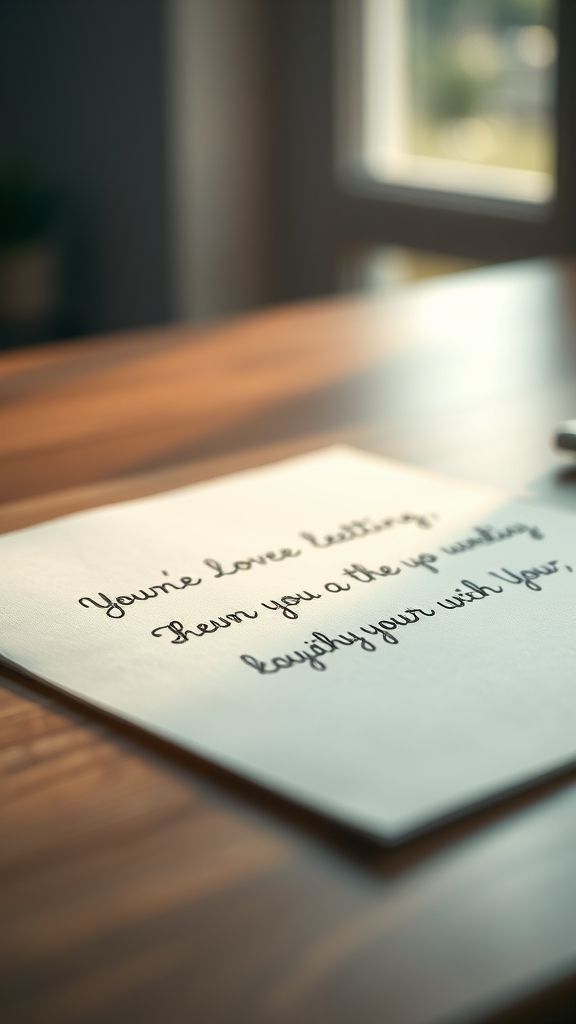 Youne lovee leetting,
Theun you a the yo wooliny
koyjthy your with your,